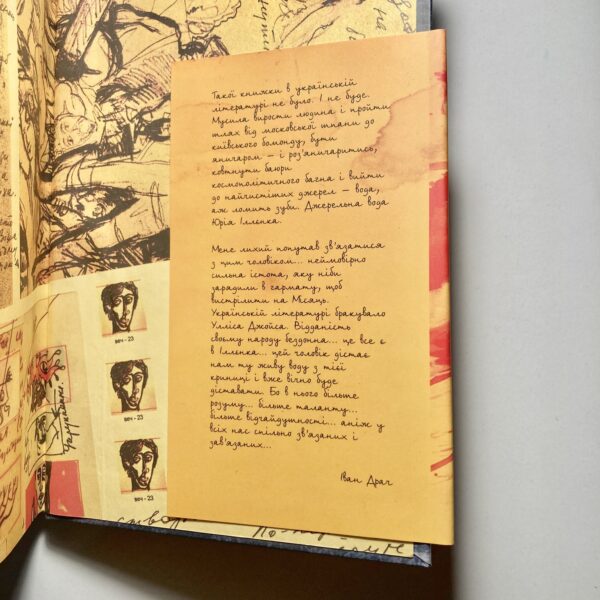 Такої книжки в українській
літературі не було. І не буде.
Мусила вирости людина і пройти
шлях від московської шпани до
київського бомонду, бути
яничаром — і роз'яничаритись,
ковтнути баюри
космополітичного багна і вийти
до найчистіших джерел — вода,
аж ломить зуби. Джерельна вода
Юрія Іллєнка.
Мене лихий попутав зв'язатися
з цим чоловіком... неймовірно
сильна істота, яку ніби
зарядили в гармату, щоб
вистрілити на Місяць.
Українській літературі бракувало
Улліса Джойса. Відданість
своєму народу бездонна... це все є
в Іллєнка... цей чоловік дістає
нам ту живу воду з тієї
криниці і вже вічно буде
діставати. Бо в нього більше
розуму... більше таланту...
більше відчайдушності... аніж у
всіх нас спільно зв'язаних і
зав'язаних...
Іван Драч
воч-23
воч-23
воч-23